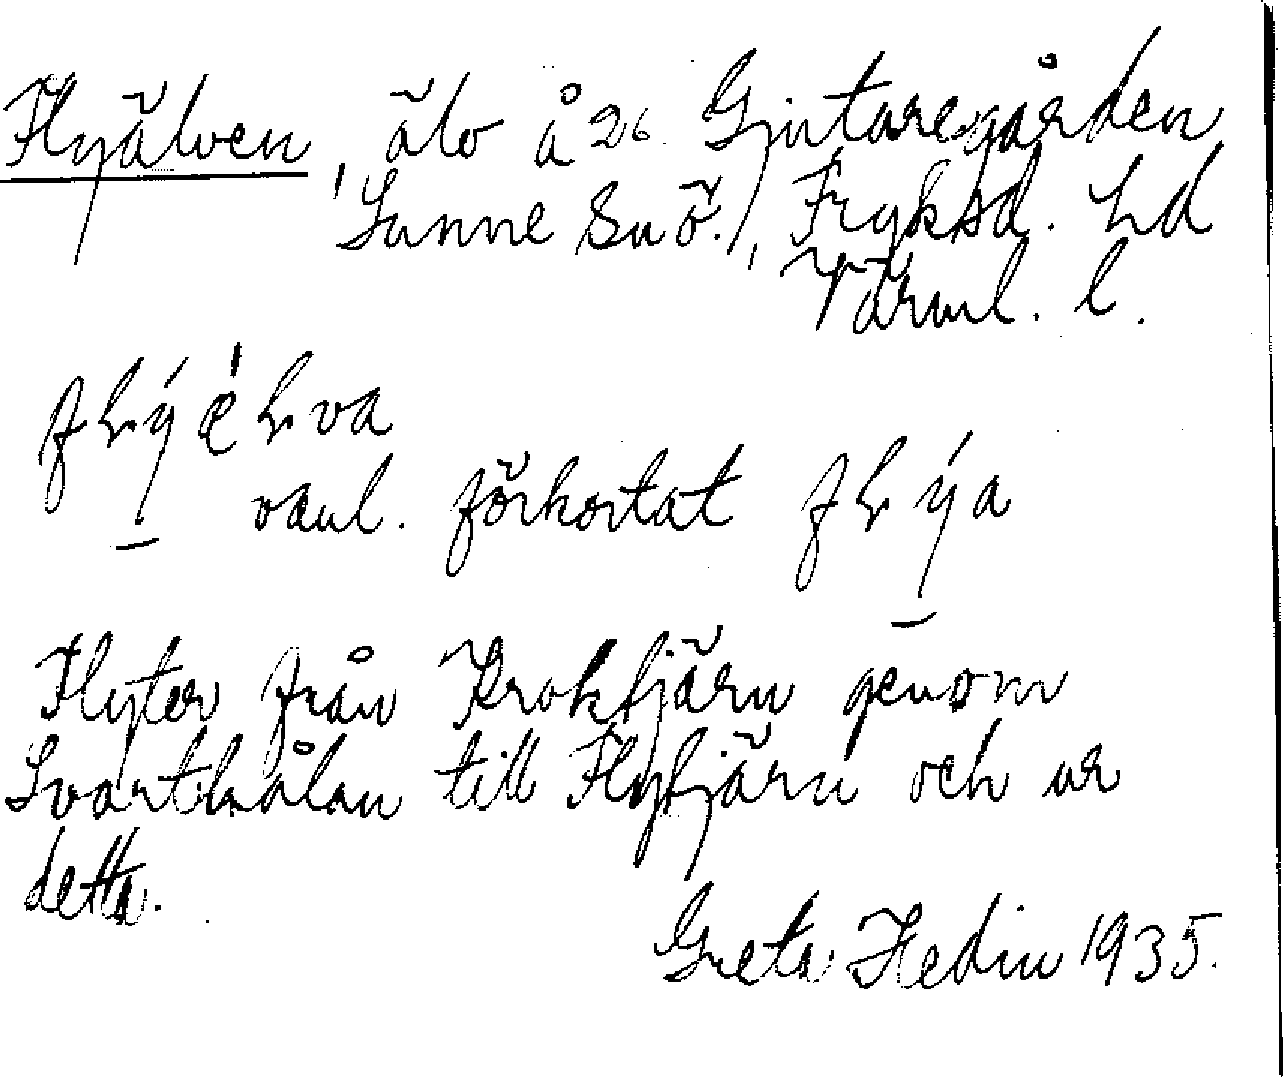 Flyälven, älv å 26 Gjutaregården
Sunne sn ö.), Fryksd. hd
Värml. l.
vanl. förkortat
Flyter från Kroktjärn genom
Svarthålan till Flytjärn och ur
detta.
Greta Hedin 1935.